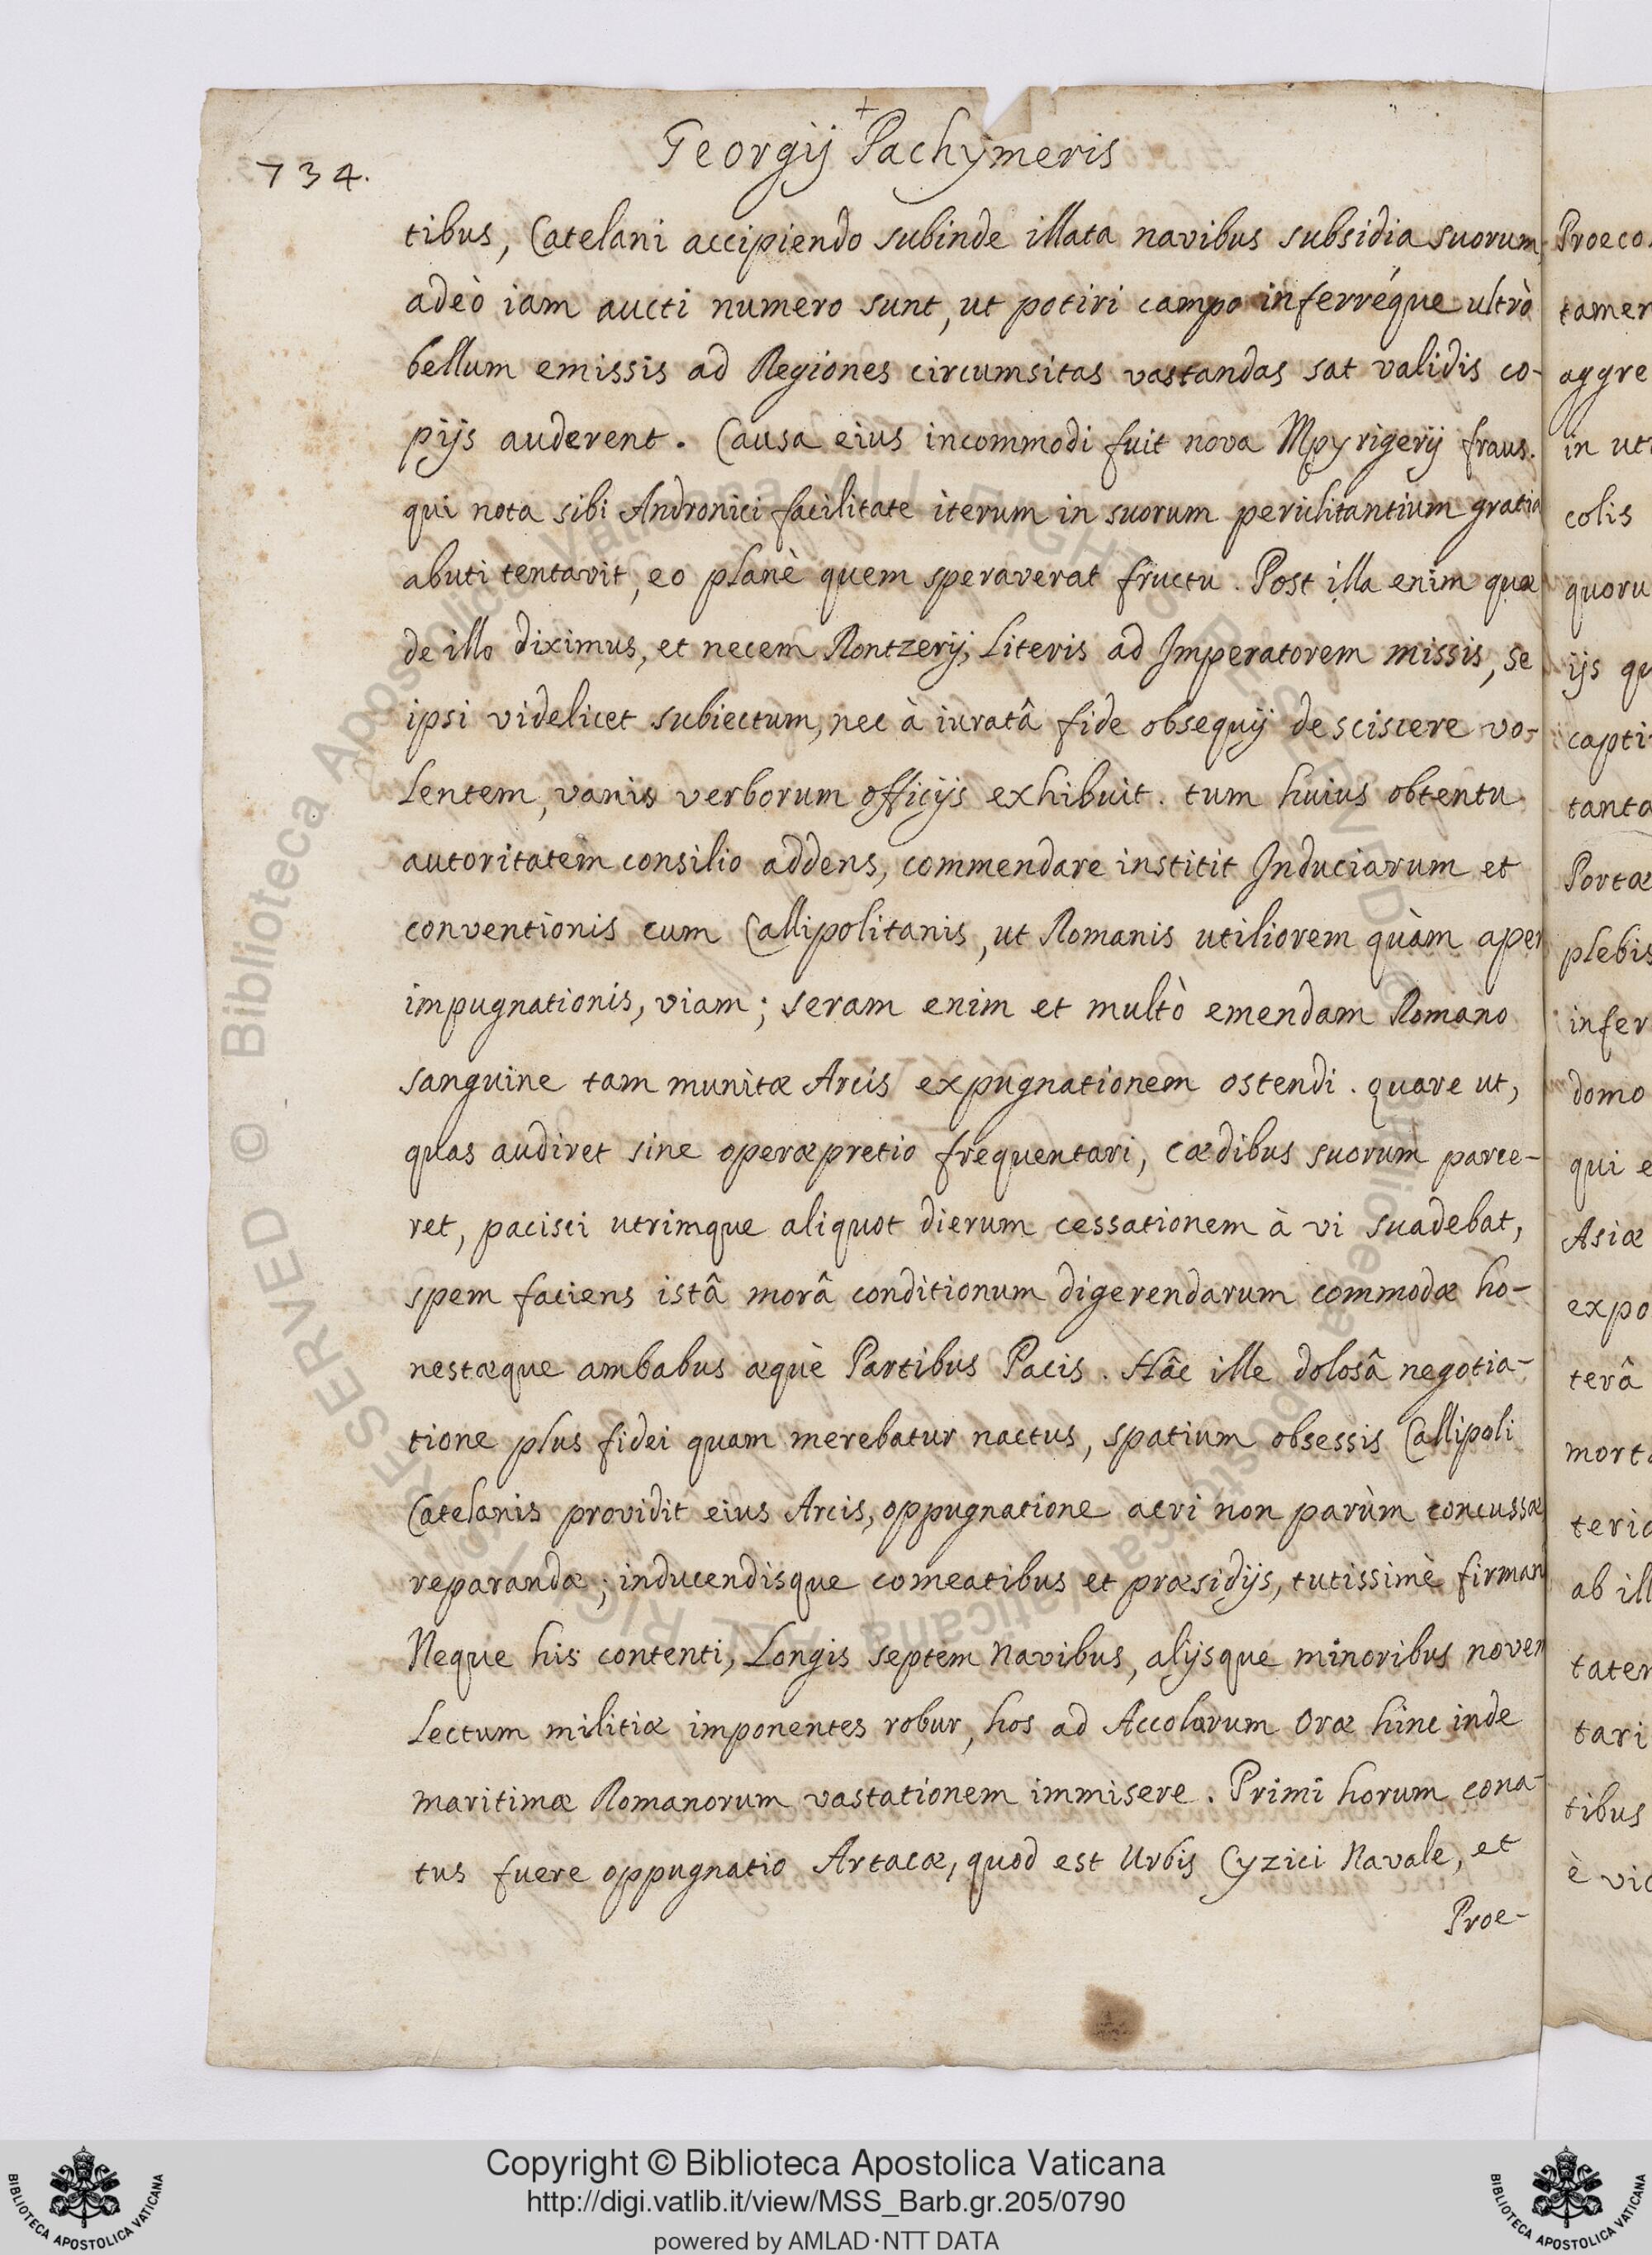 734.
Georgij Pachymeris
tibus, Catelani accipiendo subinde illata navibus subsidia suorum,
adeò iam aucti numero sunt, ut potiri campo inferréque ultrò
bellum emissis ad Regiones circumsitas vastandas sat validis co-
pijs auderent. Causa eius incommodi fuit nova Mpyrigerij fraus.
qui nota sibi Andronici facilitate iterum in suorum periclitantium gratia
abuti tentavit, eo planè quem speraverat fructu. Post illa enim quæ
de illo diximus, et necem Rontzerij, Literis ad Imperatorem missis, se
ipsi videlicet subiectum, nec à iuratâ fide obsequij desciscere vo-
lentem, vanis verborum officijs exhibuit. tum huius obtentu
autoritatem consilio addens, commendare institit Induciarum et
conventionis cum Callipolitanis, ut Romanis utiliorem quàm aper
impugnationis, viam; seram enim et multò emendam Romano
sanguine tam munitæ Arcis expugnationem ostendi. quare ut,
quas audiret sine operæpretio frequentari, cædibus suorum parce-
ret, pacisci utrimque aliquot dierum cessationem à vi suadebat,
spem faciens istâ morâ conditionum digerendarum commodæ ho-
nestæque ambabus æquè Partibus Pacis. Hâc ille dolosâ negotia-
tione plus fidei quam merebatur nactus, spatium obsessis Callipoli
Catelanis providit eius Arcis, oppugnatione acri non parùm concussæ
reparandæ; inducendisque comeatibus et præsidijs, tutissimè firman
Neque his contenti, Longis septem Navibus, alijsque minoribus noven
Lectum militiæ imponentes robur, hos ad Accolarum Oræ hinc inde
maritimæ Romanorum vastationem immisere. Primi horum cona-
tus fuere oppugnatio Artacæ, quod est Urbis Cyzici Navale, et
Proe-
Proeco
tamen
aggre
in ut
colis
quoru
ijs qu
capti
tanta
Portæ
plebis
infer
domo
qui e
Asiæ
expo
terâ
mort
teric
ab ill
taten
tari
tibus
è vic
© Biblioteca Apostolica Vaticana ALL RIGHTS RESERVED © Biblioteca Apostolica Vaticana ALL RIGHTS RESERVED
Copyright © Biblioteca Apostolica Vaticana
http://digi.vatlib.it/view/MSS_Barb.gr.205/0790
powered by AMLAD·NTT DATA
BIBLIOTECA APOSTOLICA VATICANA
BIBLIOTECA APOSTOLICA VATICANA